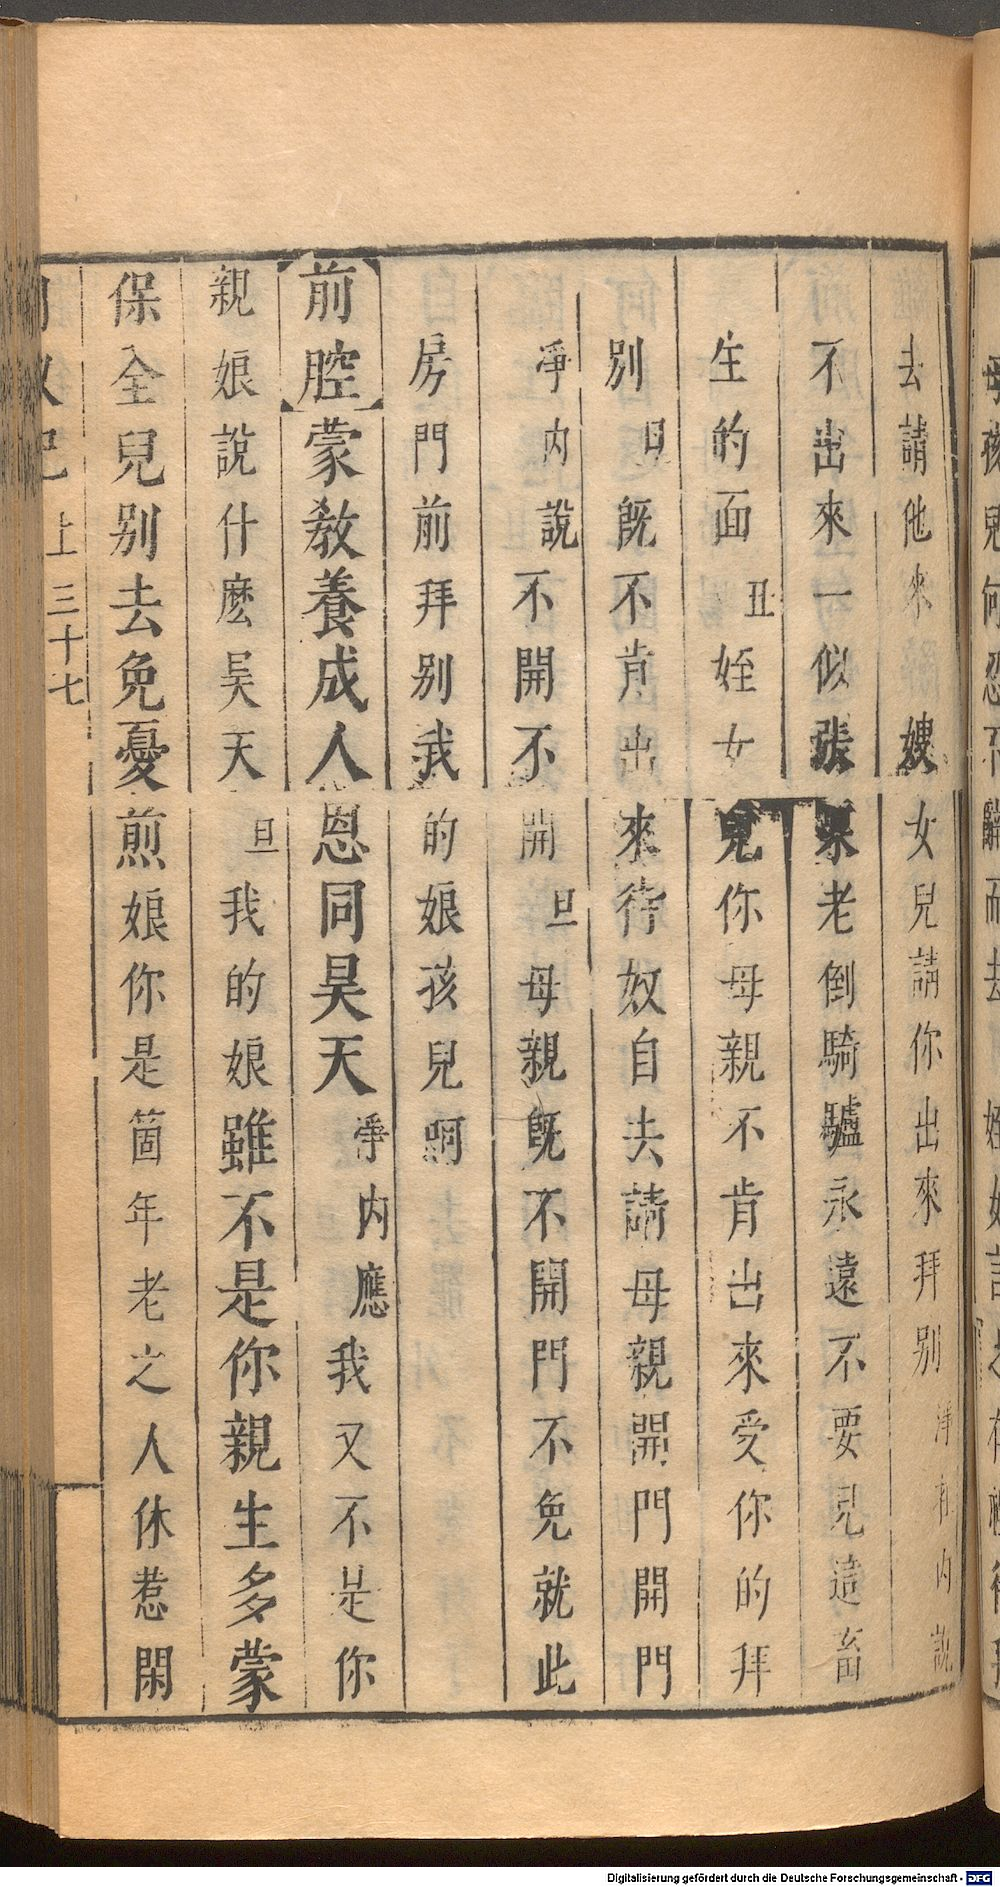 去請他來 嫂女兒請你出來拜別 淨在内說
不出來一似張果老倒騎驢永遠不要見這畜
生的面 丑姪女兒你母親不肯出來受你的拜
別 旦既不肯出來待奴自去請母親開門開門
淨内說不開不開 旦母親既不開門不免就此
房門前拜别我的娘孩兒啊
前腔蒙教養成人恩同昊天 淨内應我又不是你
親娘說什麽昊天 旦我的娘雖不是你親生多蒙
保全兒別去免憂煎娘你是箇年老之人休惹閑
上 三十七
Digitalisierung gefördert durch die Deutsche Forschungsgemeinschaft - DFG